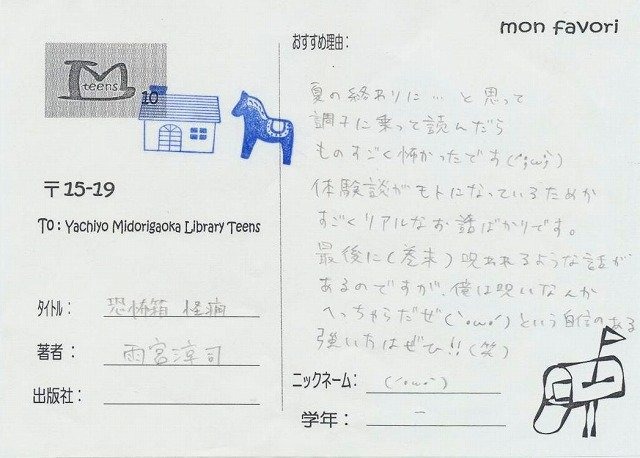 mon favori
teens
10
〒15-19
To: Yachiyo Midorigaoka Library Teens
タイトル: 恐怖箱 怪痾
著者: 雨宮淳司
出版社:
おすすめ理由:
夏の終わりに…と思って
調子に乗って読んだら
ものすごく怖かったです(´;ω;`)
体験談がモトになっているためか
すごくリアルなお話ばかりです。
最後に(巻末)呪われるような話が
あるのですが、僕は呪いなんか
へっちゃらだぜ(`・ω・´)という自信のある
強い方はぜひ!!(笑)
ニックネーム: (`・ω・´)
学年: −